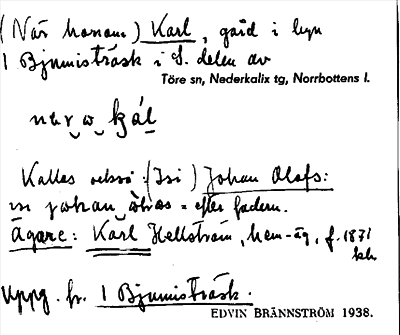 (När honom) Karl, gård i byn
1 Bjumisträsk i S. delen av
Töre sn, Nederkalix tg, Norrbottens l.
Kallas också: (Isi) Johan Olofs:
= efter fadern.
Ägare: Karl Hellström, hem-äg, f. 1871
Uppg. fr. 1 Bjumisträsk.
EDVIN BRÄNNSTRÖM 1938.